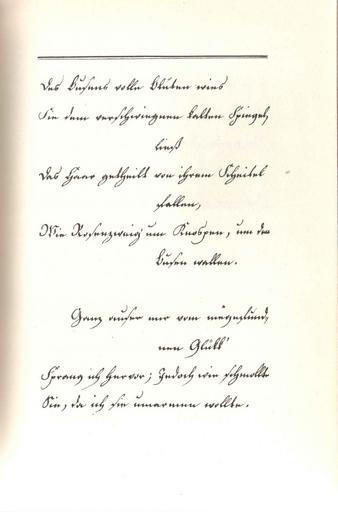 Des Busens volle Blüten wies
Sie dem verschwiegnen kalten Spiegel,
ließ
Das Haar getheilt von ihrem Scheitel
fallen,
Wie Rosenzweig' um Knospen, um den
Busen wallen.
Ganz außer mir vom niegefund,
nen Glükk'
Sprang ich hervor; Jedoch wie schmollte
Sie, da ich sie umarmen wollte.